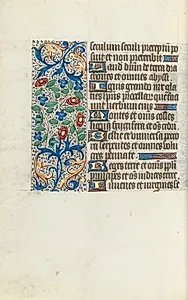 seculum seculi preceptum po
suit et non preteribit
Laudate dnm de terra dra
cones et omnes abyssi
Ignis grando nix gla
cies spūs procellarum que faciu
nt verbum eius
Montes et omnes colles
ligna fructifera et oēs cedri
Bestie et universa peco
ra serpentes et omnes volu
cres pennate
Reges terre et omēs ppli
principes et oēs iudices terre
Iuvenes et virgines se